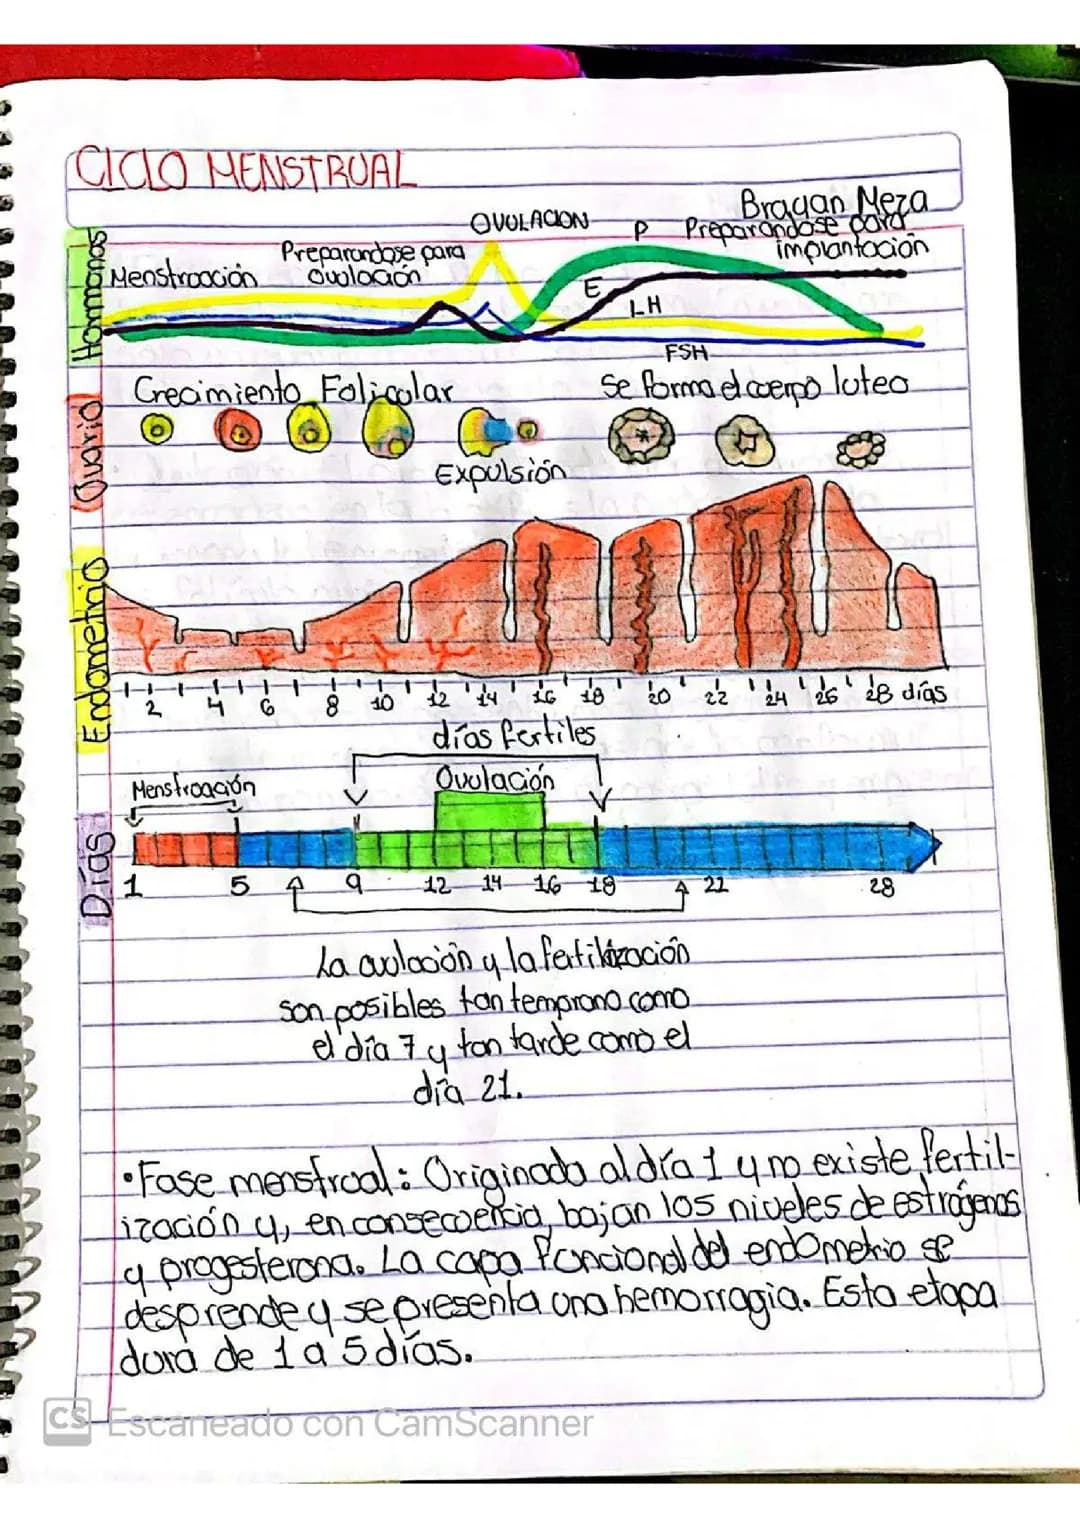 CICLO MENSTRUAL
Brayan Meza
OVULACION P Preparandose para
implantación
Preparandose para
Menstruación ovulación
Hormonas
E
LH
FSH
Crecimiento Folicular Se forma el cuerpo luteo
Ovario
Expulsión
Endometrio
2 4 6 8 10 12 14 16 18 20 22 24 26 28 días
días fertiles
Menstruación Ovulación
Días
1 5 9 12 14 16 18 22 28
La ovulación y la fertilización
son posibles tan temprano como
el día 7 y tan tarde como el
día 21.
•Fase menstrual: Originada al día 1 y no existe fertil-
ización y, en consecuencia, bajan los niveles de estrógenos
y progesterona. La capa funcional del endometrio se
desprende y se presenta una hemorragia. Esta etapa
dura de 1 a 5 días.
CS Escaneado con CamScanner